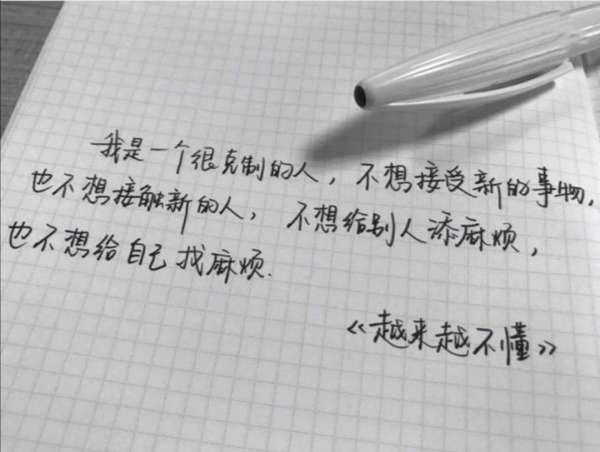 我是一个很克制的人，不想接受新的事物，
也不想接触新的人，不想给别人添麻烦，
也不想给自己找麻烦.
《越来越不懂》